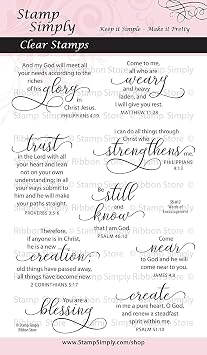 Stamp
Simply
Keep it Simple - Make it Pretty
Clear Stamps
And my God will meet all
your needs according to the
riches
of his glory in
Christ Jesus.
PHILIPPIANS 4:19
Come to me,
all who are
weary
and heavy
laden, and
I will give you rest.
MATTHEW 11:28
trust
in the Lord with all
your heart and lean
not on your own
understanding; in all
your ways submit to
him and he will make
your paths straight.
PROVERBS 3:5-6
I can do all things through
Christ who
strengthens
me.
PHILIPPIANS
4:13
be still
and
know
that I am God.
PSALM 46:10
Words of
Encouragement
Therefore,
if anyone is in Christ,
he is a new
creation;
old things have passed away,
all things have become new.
2 CORINTHIANS 5:17
Come
near
to God and he will
come near to you.
JAMES 4:8
You are a
blessing
create
in me a pure heart, O God,
and renew a steadfast
spirit within me.
PSALM 51:10
© Stamp Simply
Ribbon Store
www.StampSimply.com/shop